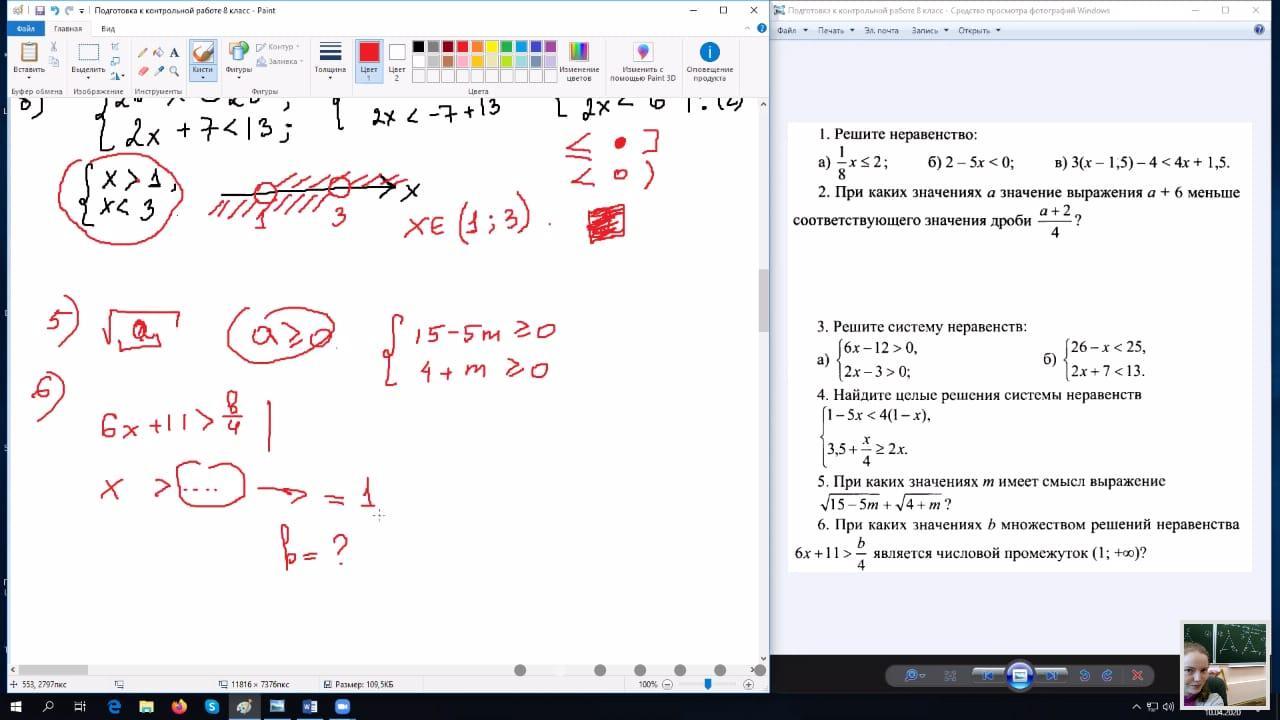 Подготовка к контрольной работе 8 класс - Paint
Файл
Главная
Вид
Вставить
Выделить
Кисти
Фигуры
Контур
Заливка
Толщина
Цвет 1
Цвет 2
Изменение цветов
Изменить с помощью Paint 3D
Оповещение продукта
Буфер обмена
Изображение
Инструменты
Фигуры
Цвета
2x + 7 < 13;
2x < -7 + 13
≤ • ]
< o )
x > 1,
x < 3
1 3 x
x∈ (1 ; 3) .
5) √a
a ≥ 0
15 - 5m ≥ 0
4 + m ≥ 0
6)
6x + 11 > 8/4 |
x > .... → = 1
b = ?
553, 2797пкс
11816 × 7376пкс
Размер: 109,5КБ
100%
Подготовка к контрольной работе 8 класс - Средство просмотра фотографий Windows
Файл
Печать
Эл. почта
Запись
Открыть
1. Решите неравенство:
а) 1/8 x ≤ 2; б) 2 – 5x < 0; в) 3(x – 1,5) – 4 < 4x + 1,5.
2. При каких значениях a значение выражения a + 6 меньше
соответствующего значения дроби (a + 2)/4 ?
3. Решите систему неравенств:
а) {6x – 12 > 0, б) {26 – x < 25,
2x – 3 > 0; 2x + 7 < 13.
4. Найдите целые решения системы неравенств
{1 – 5x < 4(1 – x),
3,5 + x/4 ≥ 2x.
5. При каких значениях m имеет смысл выражение
√15 – 5m + √4 + m ?
6. При каких значениях b множеством решений неравенства
6x + 11 > b/4 является числовой промежуток (1; +∞)?
10.04.2020